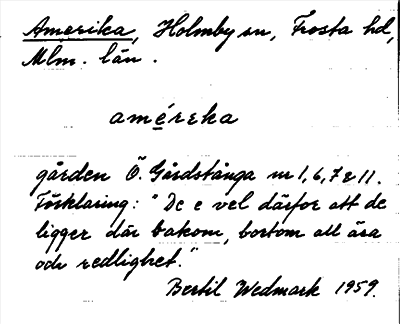 Amerika, Holmby sn, Frosta hd,
Mlm. län.
améreka
gården Ö. Gårdstånga nr 1, 6, 7 & 11.
Förklaring: "De e vel därfor att de
ligger där bakom, bortom all ära
och redlighet."
Bertil Wedmark 1959.